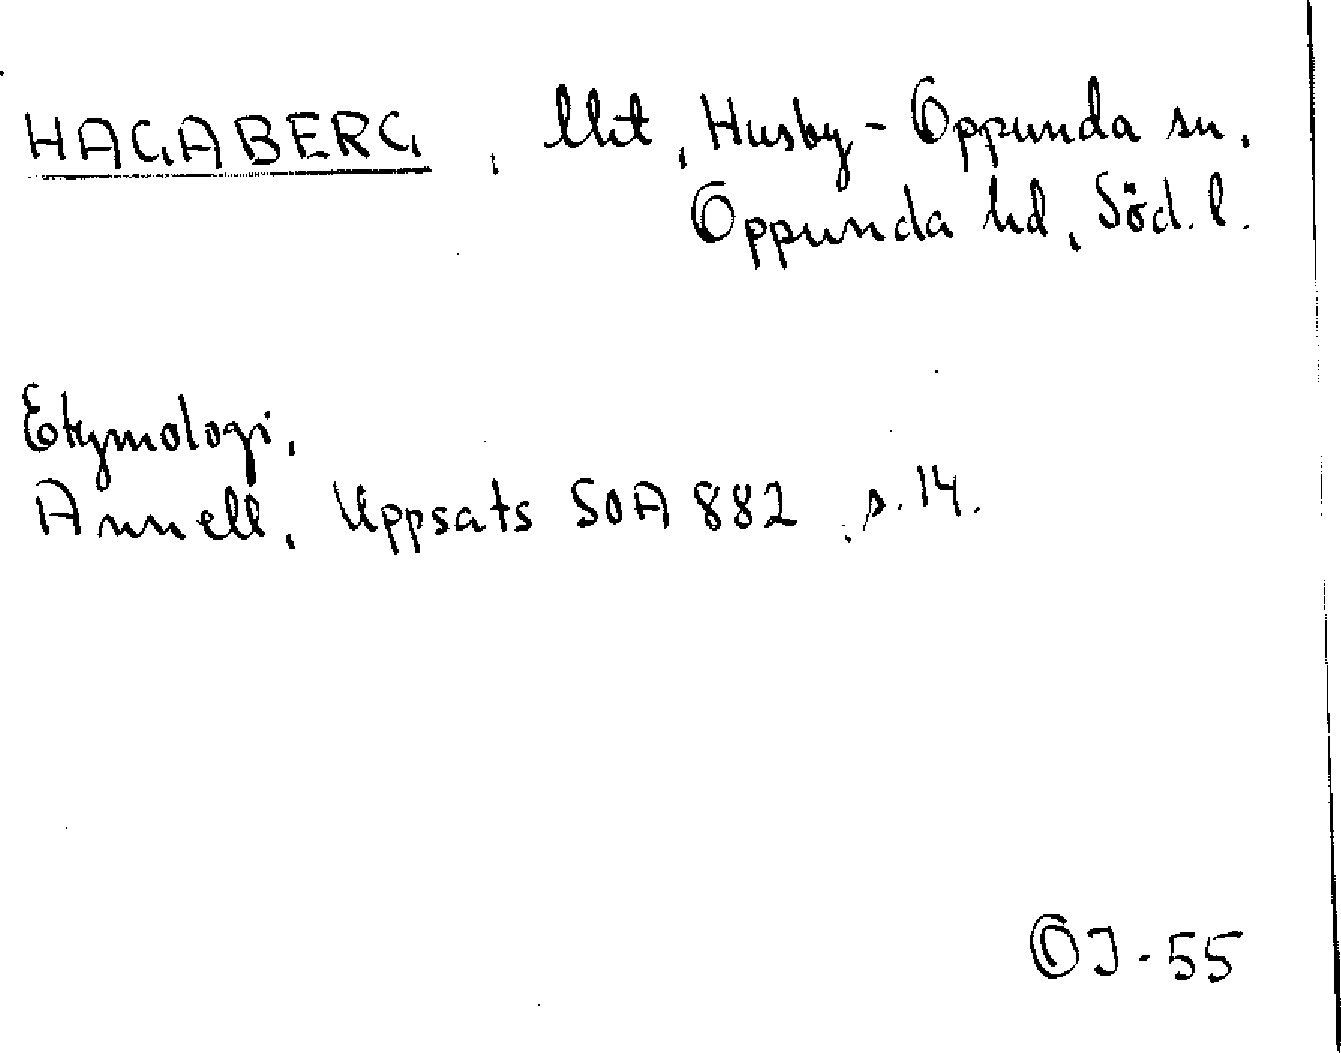 HAGABERG, lht, Husby-Oppunda sn.
Oppunda hd, Söd.l.
Etymologi.
Annell, Uppsats SOA 882, s. 14.
OJ-55